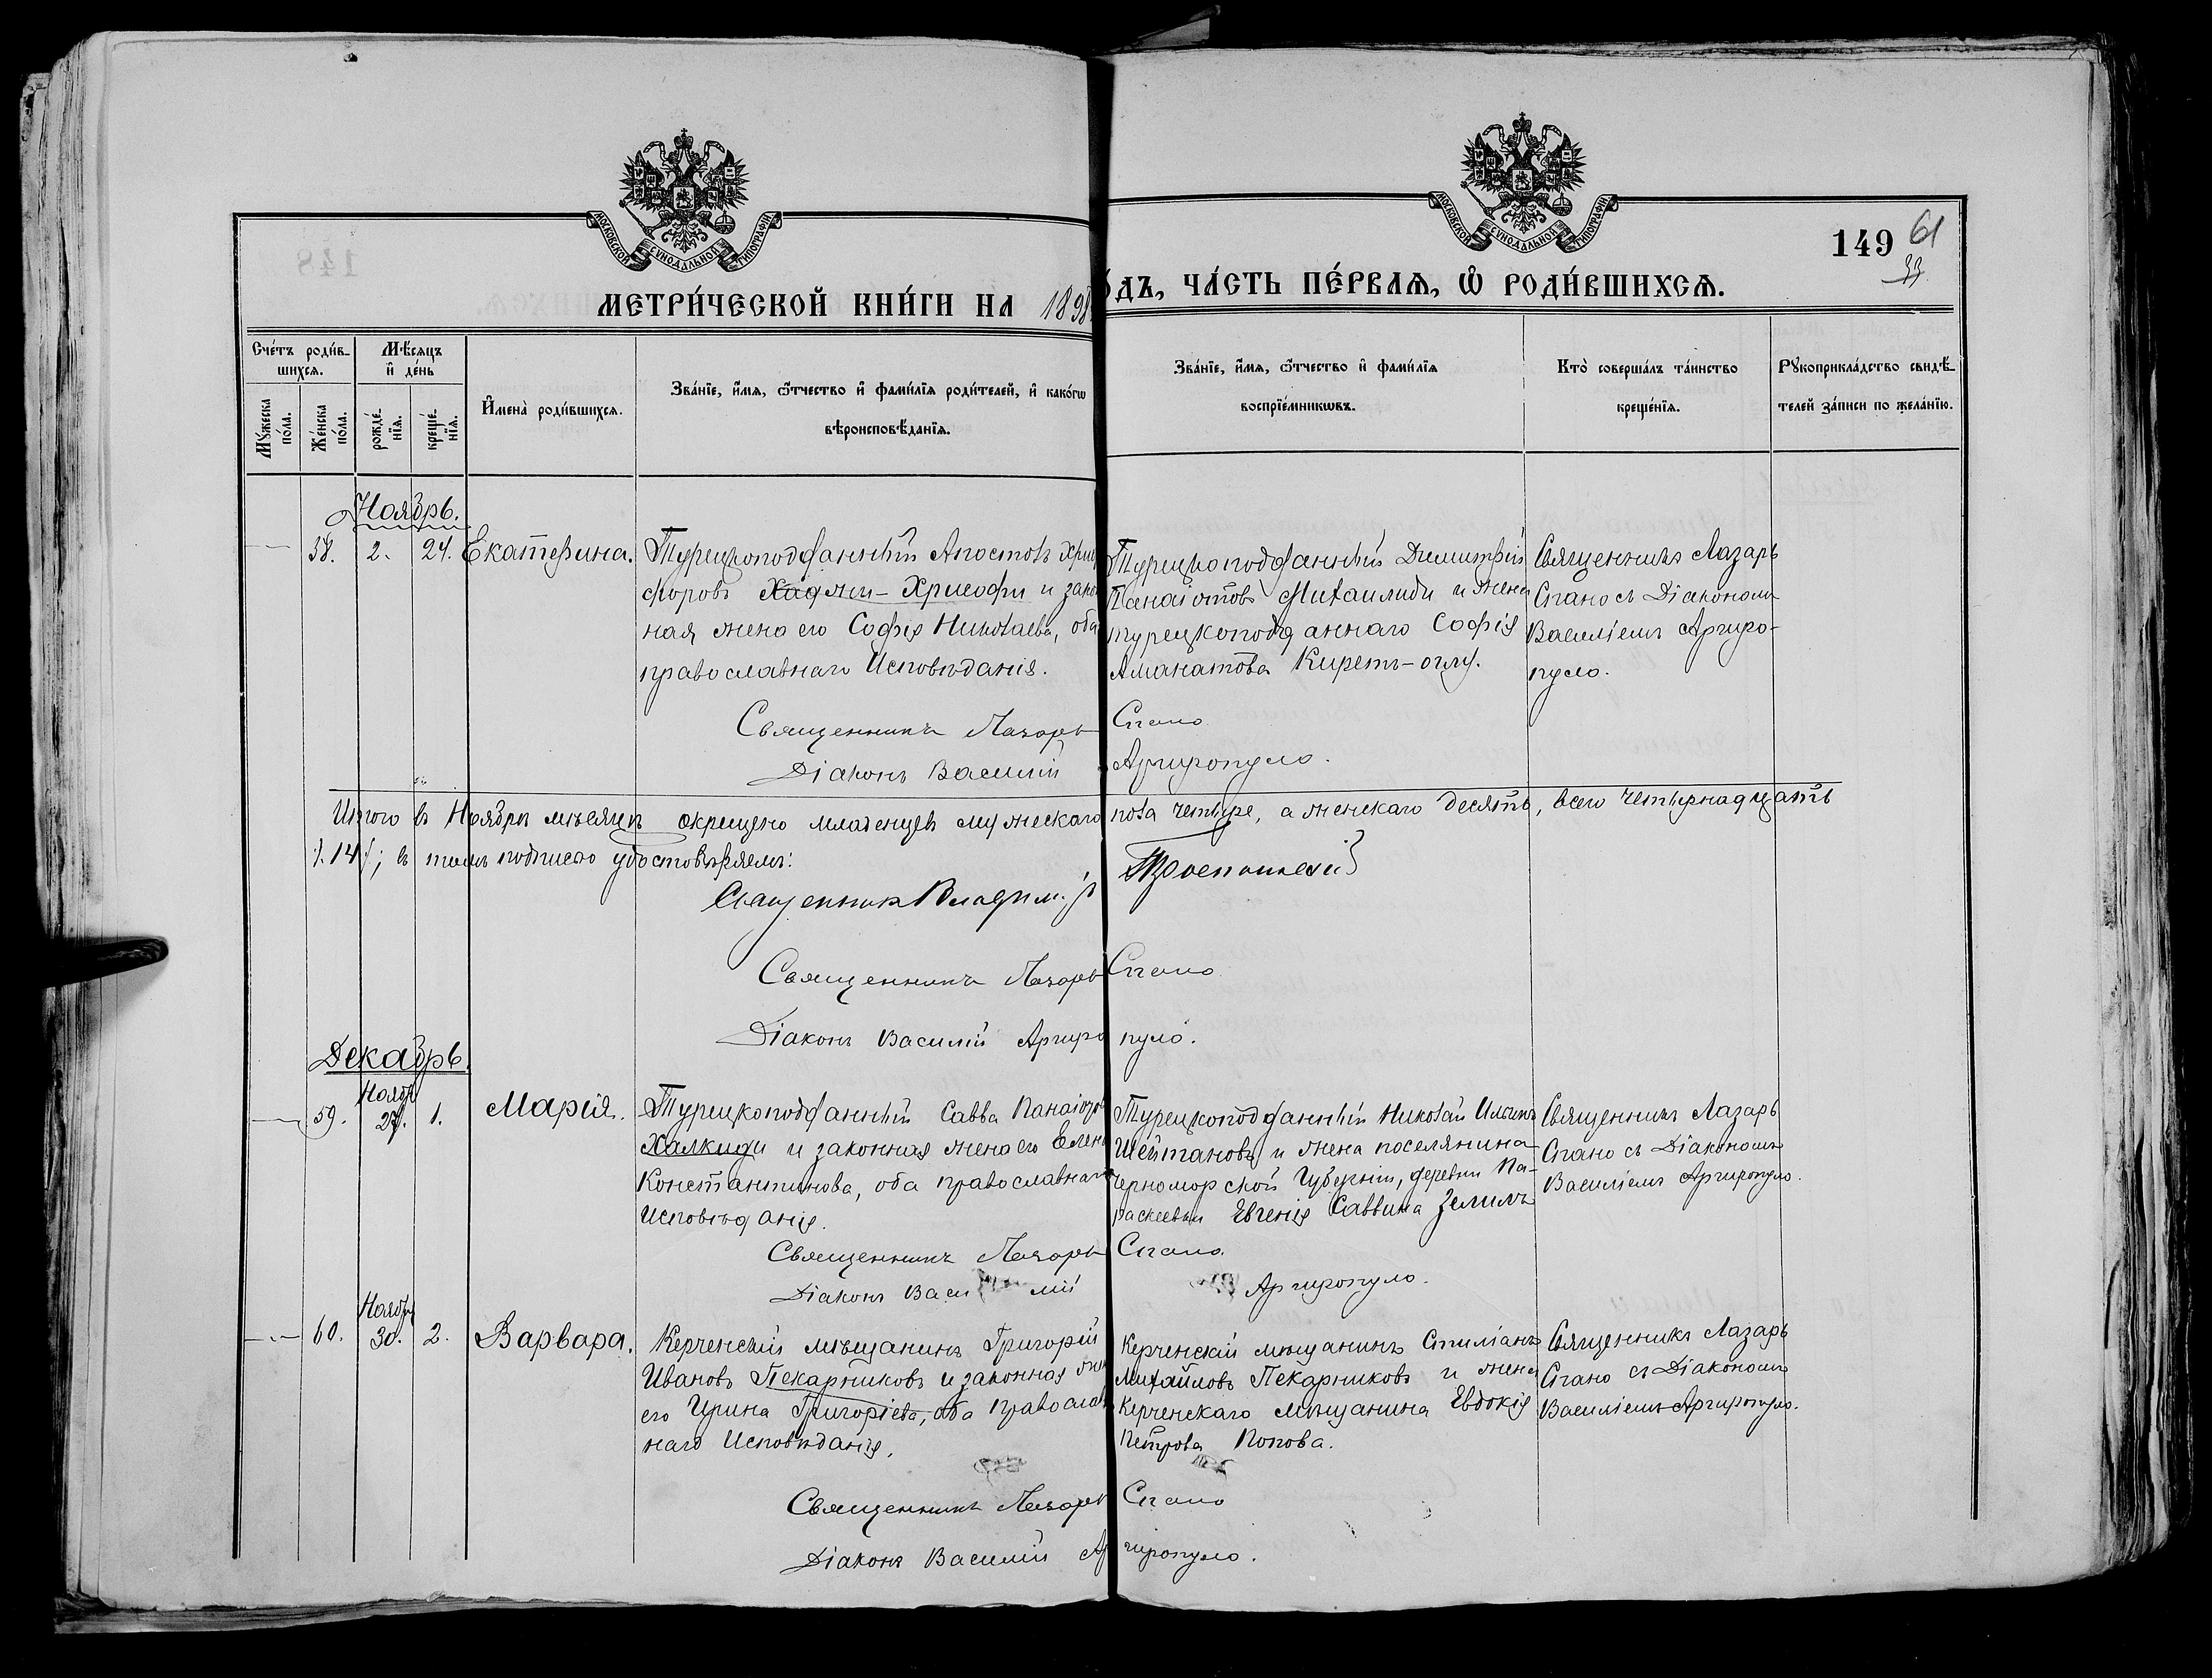 МОСКОВСКОЙ СУНОДАЛЬНОЙ ТИПОГРАФІИ
МОСКОВСКОЙ СУНОДАЛЬНОЙ ТИПОГРАФІИ
149 61
33
МЕТРИ́ЧЕСКОЙ КНИ́ГИ НА 1898
О́ДЪ, ЧА́СТЬ ПЕ́РВАѦ, Ѡ҆ РОДИ́ВШИХСѦ.
Сче́тъ роди́в-
шихсѧ.
Мꙋ́жеска
по́ла.
Же́нска
по́ла.
Мѣ́сѧцъ
и҆ де́нь
рожде́-
нїѧ.
креще́-
нїѧ.
И҆мена̀ роди́вшихсѧ.
Зва́нїе, и҆́мѧ, ѻ҆́тчество и҆ фами́лїѧ роди́телей, и҆ како́гѡ
вѣроисповѣ́данїѧ.
Зва́нїе, и҆́мѧ, ѻ҆́тчество и҆ фами́лїѧ
воспрїе́мникѡвъ.
Кто̀ соверша́лъ та́инство
креще́нїѧ.
Рꙋкоприкла́дство свидѣ́-
телей за́писи по жела́нїю.
Ноябрь.
58. 2. 24. Екатерина.
Турецкоподданный Апостолъ Хрис
форовъ Хаджи-Хрисофи и закон
ная жена его Софія Николаева, оба
православнаго Исповѣданія.
Турецкоподданный Димитрій
Панаіотовъ Михаилиди и жена
турецкоподданнаго Софія
Аманатова Киретъ-оглу.
Священникъ Лазарь
Спано съ Діакономъ
Василіемъ Аргиро-
пуло.
Священникъ Лазарь Спано
Діаконъ Василій Аргиропуло.
Итого въ Ноябрѣ мѣсяцѣ окрещено младенцевъ мужескаго пола четыре, а женскаго десять, всего четырнадцать
/.14/; въ томъ подписью удостовѣряемъ:
Священникъ Владиміръ
Священникъ Лазарь Спано
Діаконъ Василій Аргиропуло.
Декабрь.
59. Ноябр 27. 1. Марія.
Турецкоподданный Савва Панаіотов
Халкиди и законная жена его Елена
Константинова, оба православнаго
Исповѣданія.
Турецкоподданный Николай Ильинъ
Шейтановъ и жена поселянина
Черноморской Губерніи, деревни Па-
раскеевки Евгенія Саввина Зелилъ
Священникъ Лазарь
Спано съ Діакономъ
Василіемъ Аргиропуло.
Священникъ Лазарь Спано
Діаконъ Василій Аргиропуло.
60. Ноябр 30. 2. Варвара.
Керченскій мѣщанинъ Григорій
Ивановъ Пекарниковъ и законная жена
его Ирина Григоріева, оба православ
наго Исповѣданія.
Керченскій мѣщанинъ Стиліанъ
Михайловъ Пекарниковъ и жена
Керченскаго мѣщанина Евдокія
Петрова Попова.
Священникъ Лазарь
Спано съ Діакономъ
Василіемъ Аргиропуло.
Священникъ Лазарь Спано
Діаконъ Василій Аргиропуло.